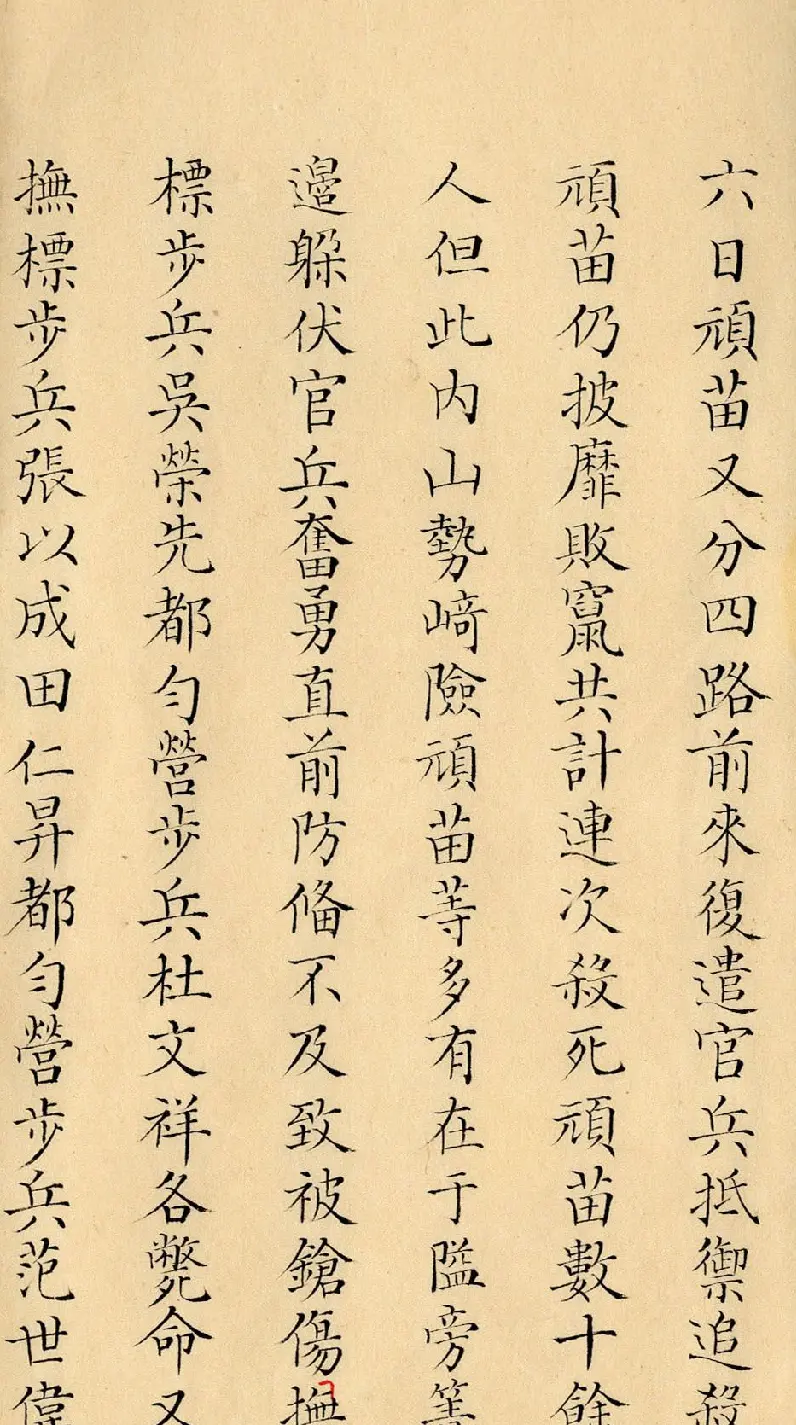 六日頑苗又分四路前來復遣官兵抵禦追殺
頑苗仍披靡敗竄共計連次殺死頑苗數十餘
人但此內山勢崎險頑苗等多有在于隘旁箐
邊躲伏官兵奮勇直前防偹不及致被鎗傷撫
標步兵吳榮先都勻營步兵杜文祥各斃命又
撫標步兵張以成田仁昇都勻營步兵范世偉